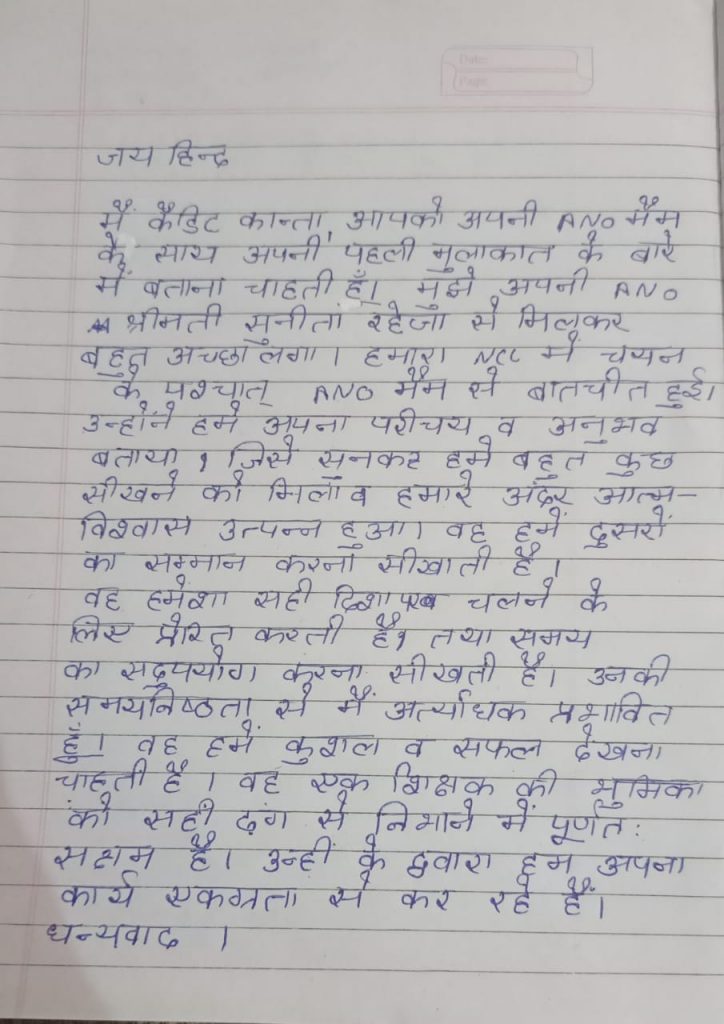 Date:
Page:
जय हिन्द
मैं कैडिट कान्ता, आपको अपनी ANO मैम
के साथ अपनी पहली मुलाकात के बारे
में बताना चाहती हूँ। मुझे अपनी ANO
श्रीमती सुनीता रहेजा से मिलकर
बहुत अच्छा लगा। हमारा NCC में चयन
के पश्चात् ANO मैम से बातचीत हुई।
उन्होंने हमे अपना परीचय व अनुभव
बताया। जिसे सुनकर हमे बहुत कुछ
सीखने को मिला व हमारे अंदर आत्म-
विश्वास उत्पन्न हुआ। वह हमें दुसरों
का सम्मान करना सीखाती है।
वह हमेंशा सही दिशा पर चलने के
लिए प्रेरित करती है। तथा समय
का सदुपयोग करना सीखती है। उनकी
समयनिष्ठता से मैं अत्याधिक प्रभावित
हूँ। वह हमें कुशल व सफल देखना
चाहती है। वह एक शिक्षक की भुमिका
को सही ढ़ंग से निभाने में पूर्णत:
सक्षम है। उन्हीं के द्वारा हम अपना
कार्य एकग्रता से कर रहे हैं।
धन्यवाद ।